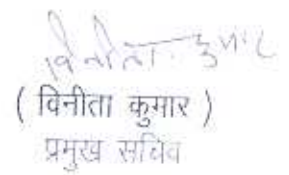 विनीता कुमार
( विनीता कुमार )
प्रमुख सचिव